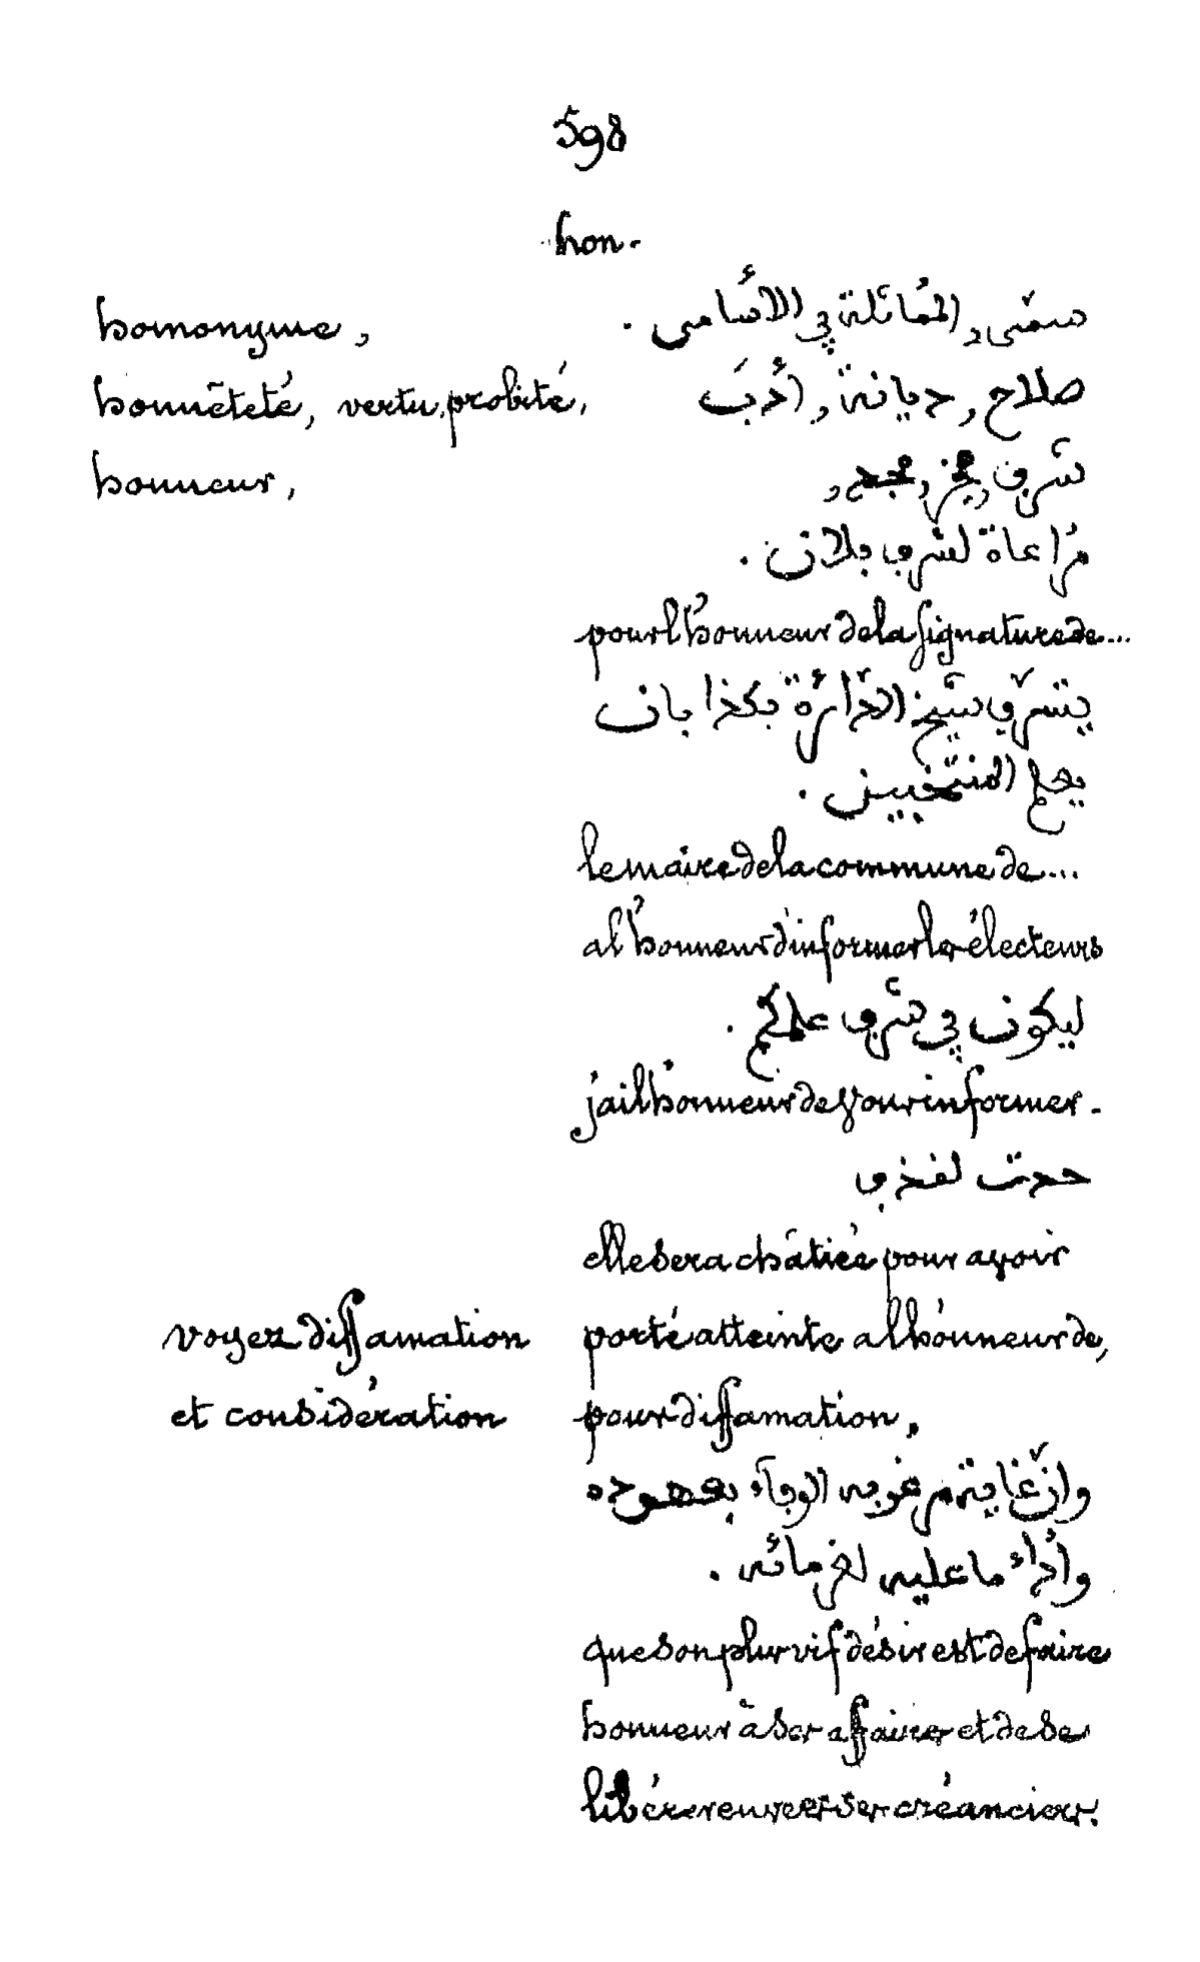 598
hon.
homonyme, سمّى, المُماثلة ڢي الأسامى.
honnêteté, vertu, probité, صلاح, ديانة, أدَبَ
honneur, شرڢ, ڢخر, مجد,
مُراعاة لشرڢ ڢلان.
pour l'honneur de la signature de...
يتشرّڢ شيخ الدّائرة بكذا بان
يعلم المنتخبين.
le maire de la commune de...
a l'honneur d'informer les électeurs
ليكون ڢي شرڢ علمكم.
j'ai l'honneur de vous informer.
حدت لقذڢ
elle sera châtiée pour avoir
voyez diffamation porté atteinte a l'honneur de,
et considération pour diffamation,
وانّ غاية مرغوبه الوفاء بعهوده
وأداء ما عليه لغرمائه.
que son plus vif désir est de faire
honneur à ses affaires et de se
libérer envers ses créanciers.